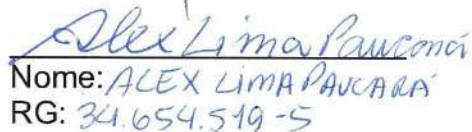 Alex Lima Paucará
Nome: ALEX LIMA PAUCARÁ
RG: 34.654.519-5